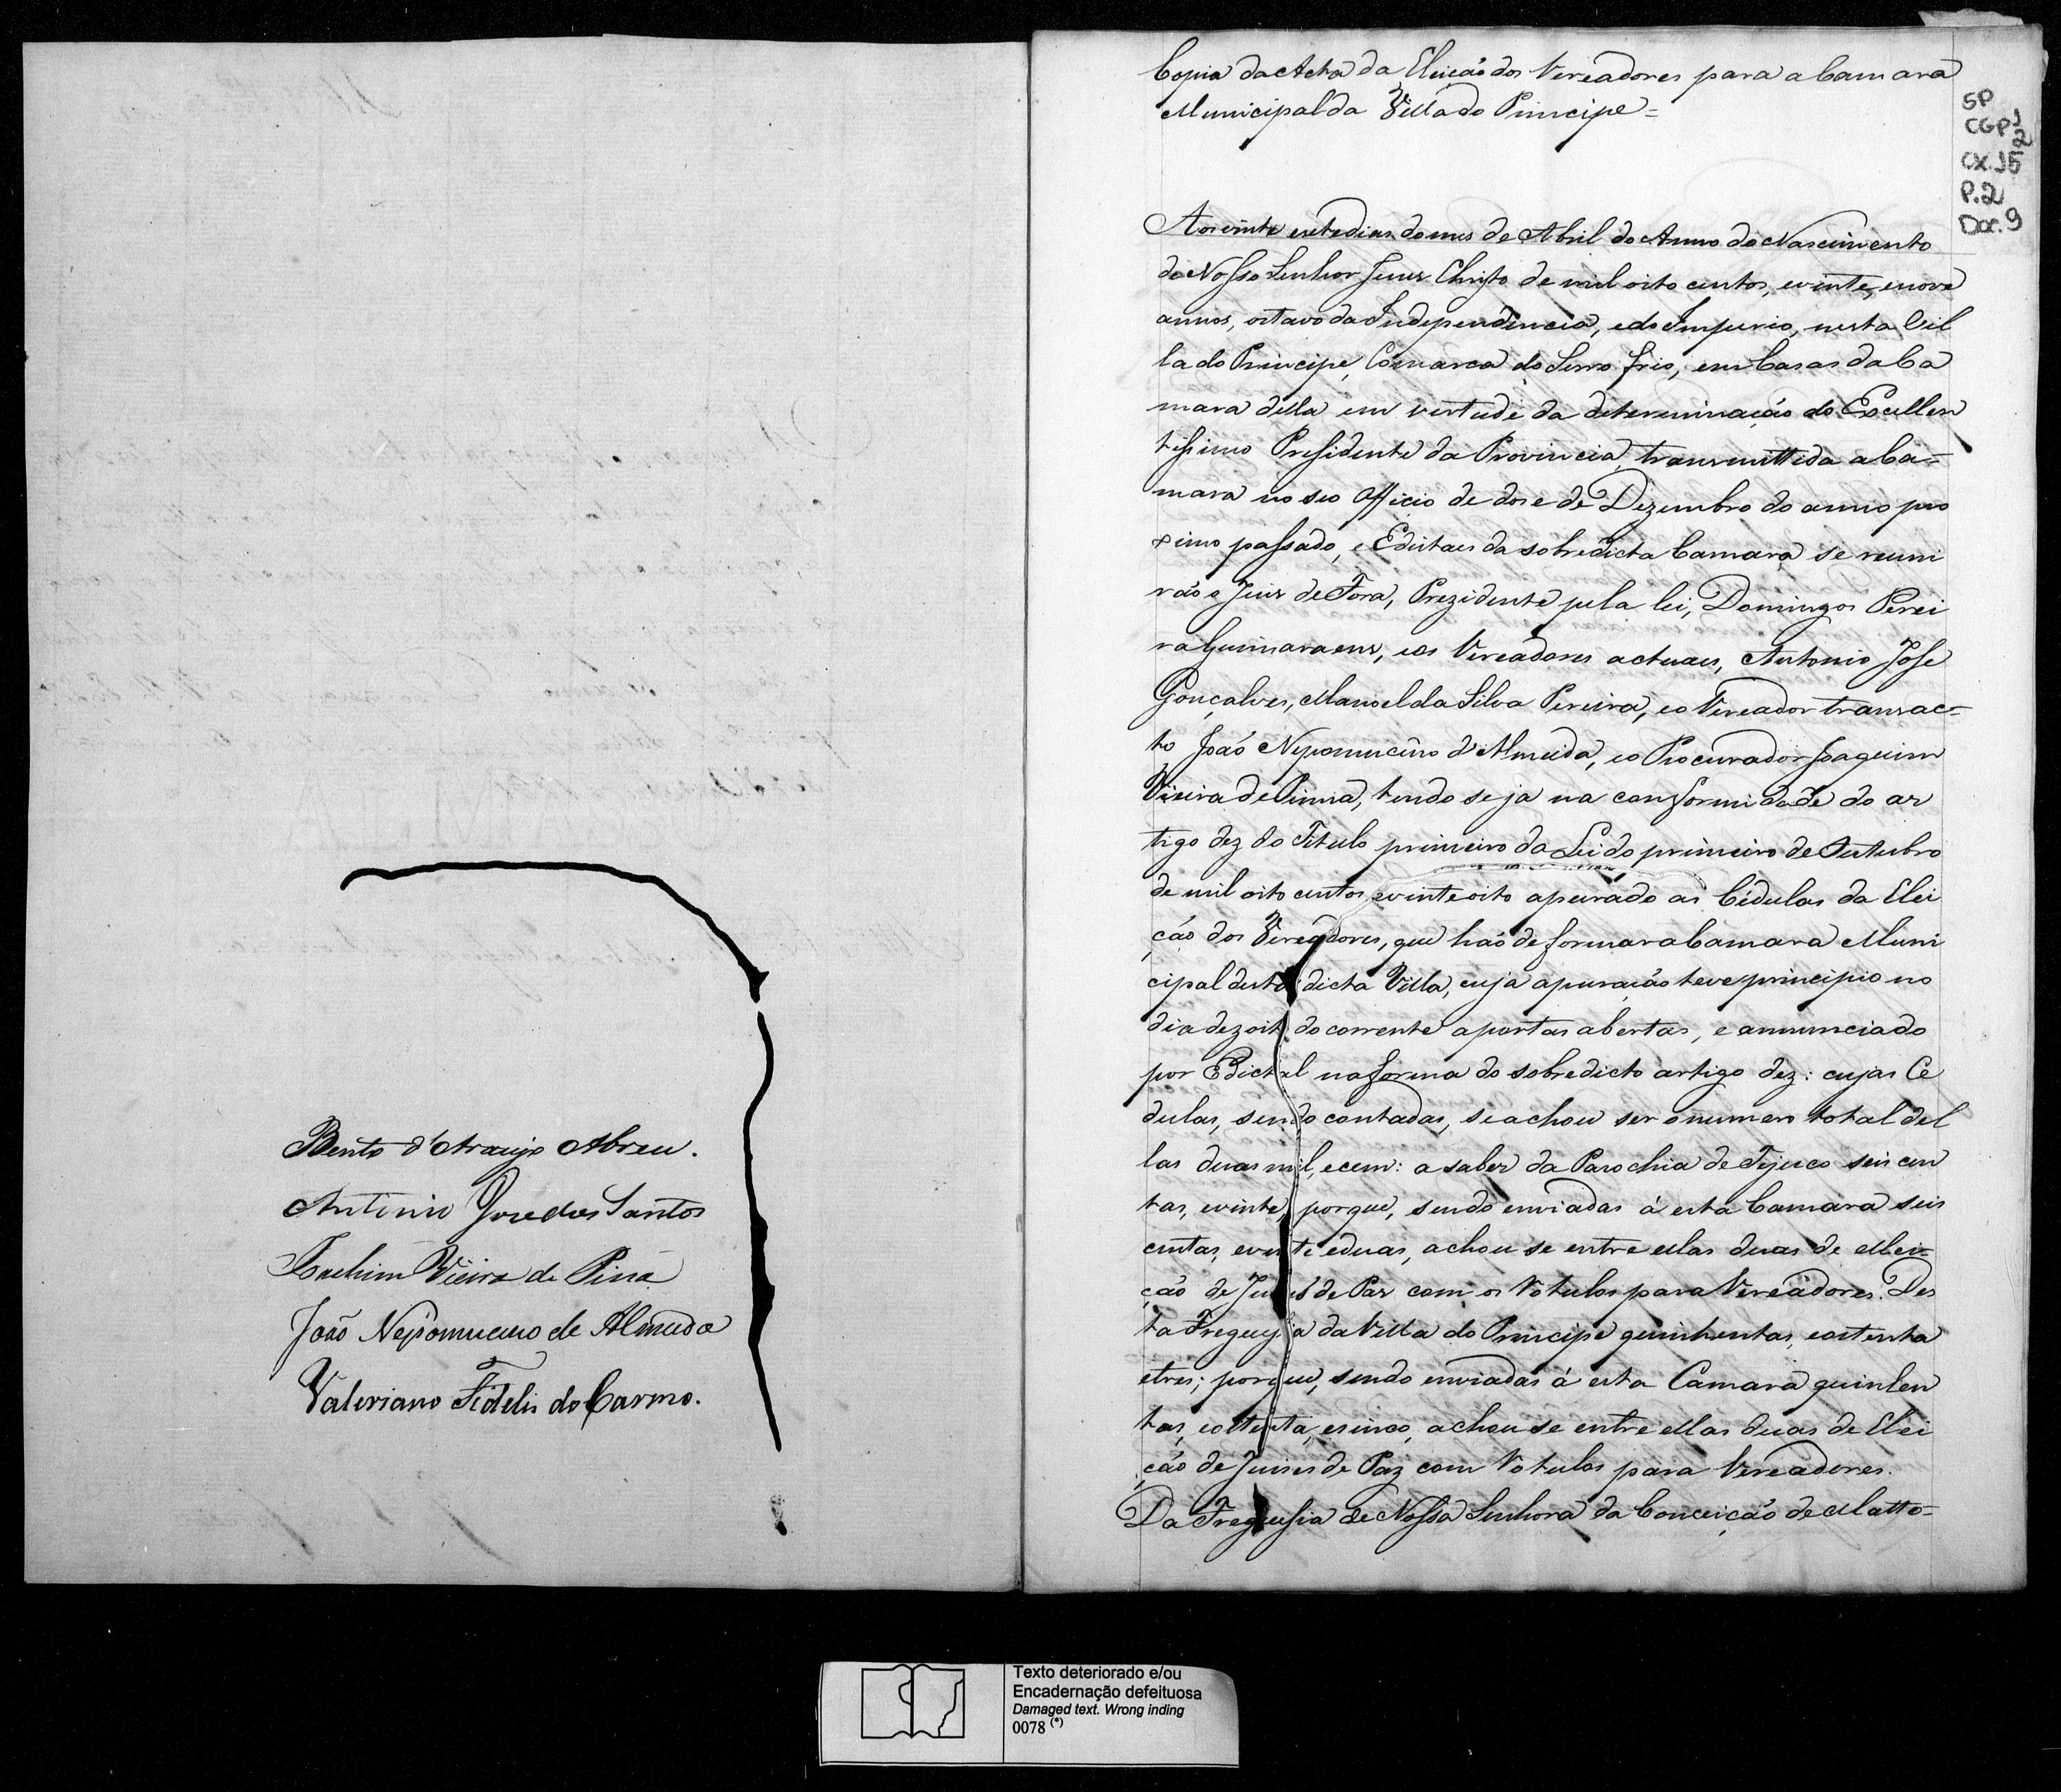 Bento d'Araujo Abreu.
Antonio Jose dos Santos
Joachim Vieira de Pina
João Nepomuceno de Almeida
Valeriano Fidelis do Carmo.
Copia da Acta da Eleição dos Vereadores para a Camara
Municipal da Villa do Principe =
SP
CGP 1
2
CX. 15
P. 2
Doc. 9
Aos vinte e sete dias do mes de Abril do Anno do Nascimento
de Nosso Senhor Jesus Christo de mil oito centos, e vinte, e nove
annos, oitavo da Independencia, e do Imperio, nesta Vil
la do Principe, Comarca do Serro frio, em Casas da Ca
mara della em virtude da determinação do Excellen
tissimo Presidente da Provincia, transmittida a Ca=
mara no seo Officio de doze de Dezembro do anno pro
ximo passado, e Editaes da sobredicta Camara se reuni
rão o Juiz de Fora, Prezidente pela lei, Domingos Perei
ra Guimaraens, e os Vereadores actuaes, Antonio Jose
Gonçalves, Manoel da Silva Pereira, e o Vereador transac=
to João Nepomuceno d'Almeida, e o Procurador Joaquim
Vieira de Pinna, tendo se ja na conformidade do ar
tigo dez do Titulo primeiro da Lei do primeiro de Outubro
de mil oito centos, e vinte oito apurado as Cédulas da Elei
ção dos Vereadores, que hão de formar a Camara Muni
cipal desta dicta Villa, cuja apuração teve principio no
dia dezoito do corrente a portas abertas, e annunciado
por Edictal na forma do sobredicto artigo dez: cujas Ce
dulas, sendo contadas, se achou ser o numero total del
las duas mil, e cem: a saber da Parochia de Tejuco seis cen
tas, e vinte, porque, sendo enviadas á esta Camara seis
centas, e vinte e duas, achou se entre ellas duas de Elei=
ção de Juises de Paz com os Votulos para Vereadores. Des
ta Freguesia da Villa do Principe quinhentas, e oitenta
e tres; porque, sendo enviadas á esta Camara quinhen
tas, e oitenta, e sinco, achou se entre ellas duas de Elei
ção de Juises de Paz com Votulos para Vereadores.
Da Freguesia de Nossa Senhora da Conceição de Matto=
Texto deteriorado e/ou
Encadernação defeituosa
Damaged text. Wrong inding
0078 (*)